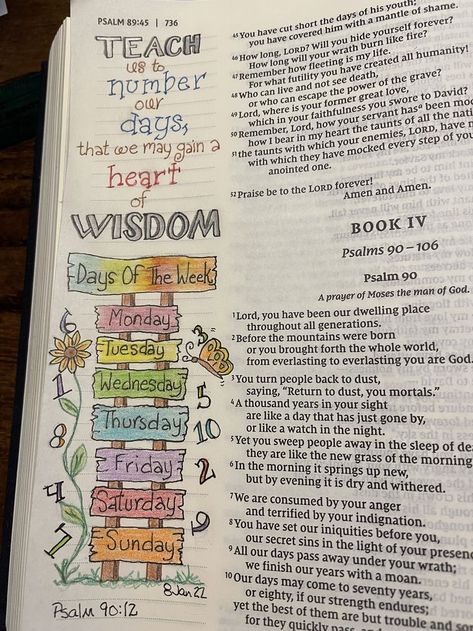 PSALM 89:45 | 736
TEACH
us to
number
our
days,
that we may gain a
heart
of
WISDOM
Days Of The Week
Monday
Tuesday
Wednesday
Thursday
Friday
Saturday
Sunday
6
3
1
5
8
10
4
2
7
9
8 Jan 22
Psalm 90:12
45 You have cut short the days of his youth;
you have covered him with a mantle of shame.
46 How long, LORD? Will you hide yourself forever?
How long will your wrath burn like fire?
47 Remember how fleeting is my life.
For what futility you have created all humanity!
48 Who can live and not see death,
or who can escape the power of the grave?
49 Lord, where is your former great love,
which in your faithfulness you swore to David?
50 Remember, Lord, how your servant has been mo
how I bear in my heart the taunts of all the nati
51 the taunts with which your enemies, LORD, have m
with which they have mocked every step of you
anointed one.
52 Praise be to the LORD forever!
Amen and Amen.
BOOK IV
Psalms 90–106
Psalm 90
A prayer of Moses the man of God.
1 Lord, you have been our dwelling place
throughout all generations.
2 Before the mountains were born
or you brought forth the whole world,
from everlasting to everlasting you are God.
3 You turn people back to dust,
saying, “Return to dust, you mortals.”
4 A thousand years in your sight
are like a day that has just gone by,
or like a watch in the night.
5 Yet you sweep people away in the sleep of de
they are like the new grass of the morning
6 In the morning it springs up new,
but by evening it is dry and withered.
7 We are consumed by your anger
and terrified by your indignation.
8 You have set our iniquities before you,
our secret sins in the light of your presenc
9 All our days pass away under your wrath;
we finish our years with a moan.
10 Our days may come to seventy years,
or eighty, if our strength endures;
yet the best of them are but trouble and so
for they quickly pass, an